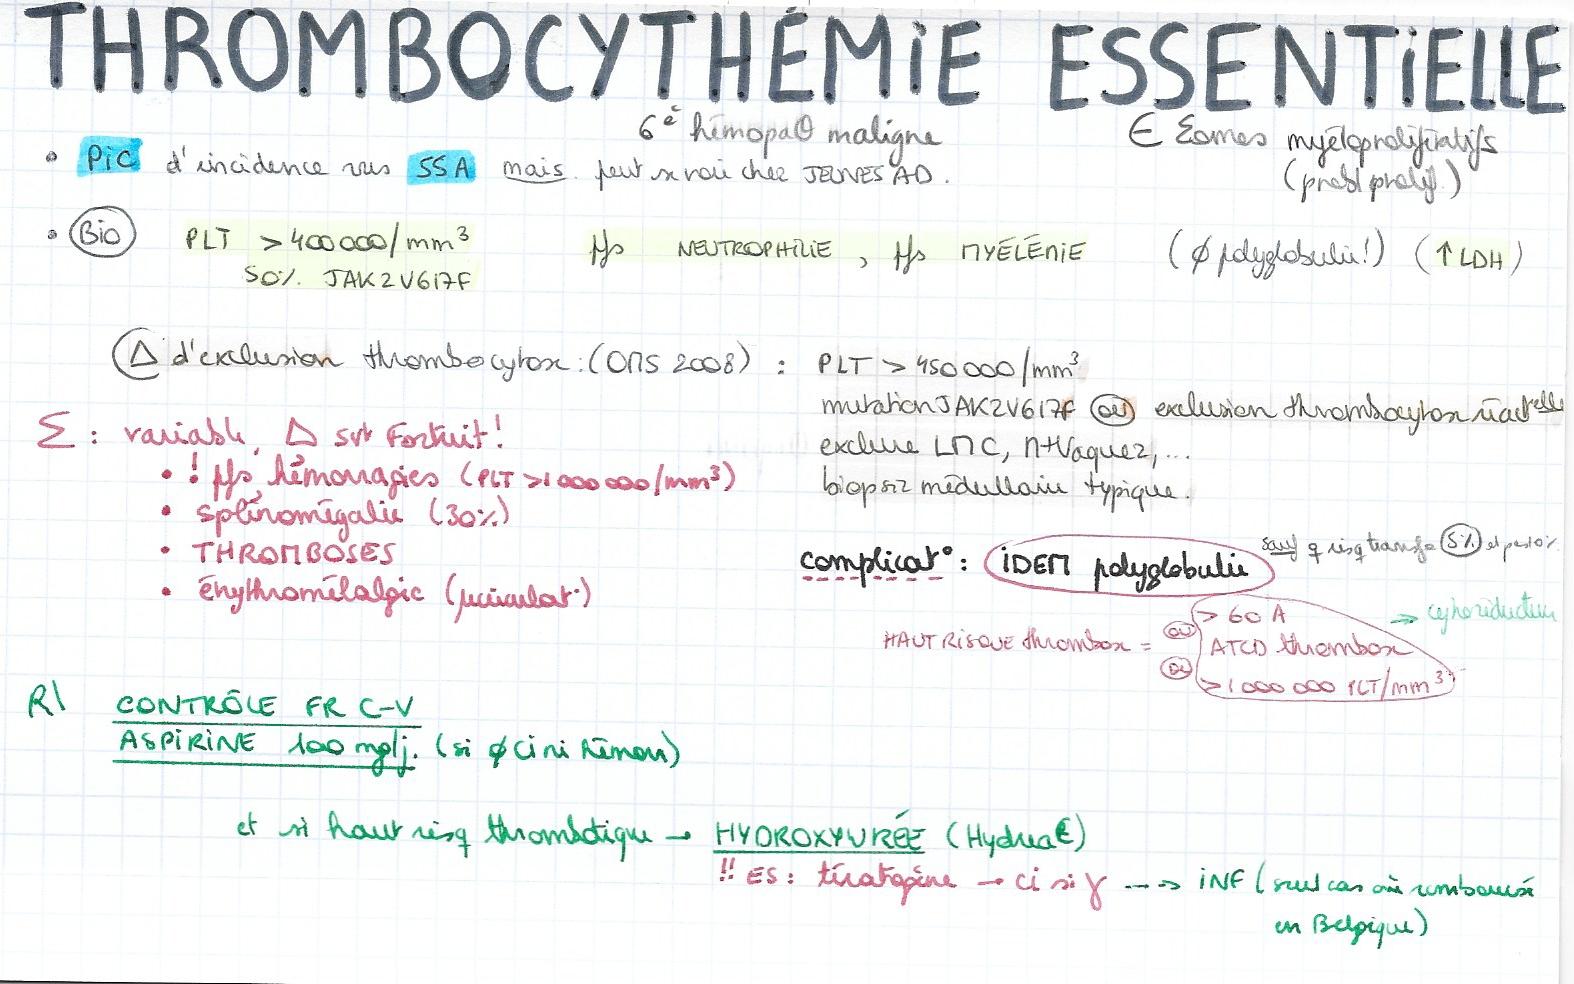 THROMBOCYTHÉMIE ESSENTIELLE
6è hémopaθ maligne
∈ myéloprolifératifs
(prolif.)
• PIC d'incidence vers 55A mais peut se voir chez JEUNES AD.
• Bio PLT > 400 000/mm³ pfs NEUTROPHILIE, pfs MYÉLÉMIE (∅ polyglobulie!) (↑ LDH)
50% JAK2V617F
Δ d'exclusion thrombocytose : (OMS 2008) : PLT > 450 000/mm³
mutation JAK2V617F ou exclusion thrombocytose réactelle
exclure LMC, Vaquez, ...
biopsie médullaire typique.
Σ : variable, Δ svt Fortuit!
• ! pfs hémorragies (PLT > 1 000 000/mm³)
• splénomégalie (30%)
• THROMBOSES
• érythromélalgie (µcirculat°)
complicat° : IDEM polyglobulie sauf q risq transfo 5% et pas 10%
HAUT RISQUE thrombose = > 60 A
ou ATCD thrombose
ou > 1 000 000 PLT/mm³
→ cytoréducteur
R\ CONTRÔLE FR C-V
ASPIRINE 100 mg/j. (si ∅ CI ni hémorr)
et si haut risq thrombotique → HYDROXYURÉE (Hydrea€)
!! ES : tératogène → CI si ---> INF (seul cas où remboursé
en Belgique)